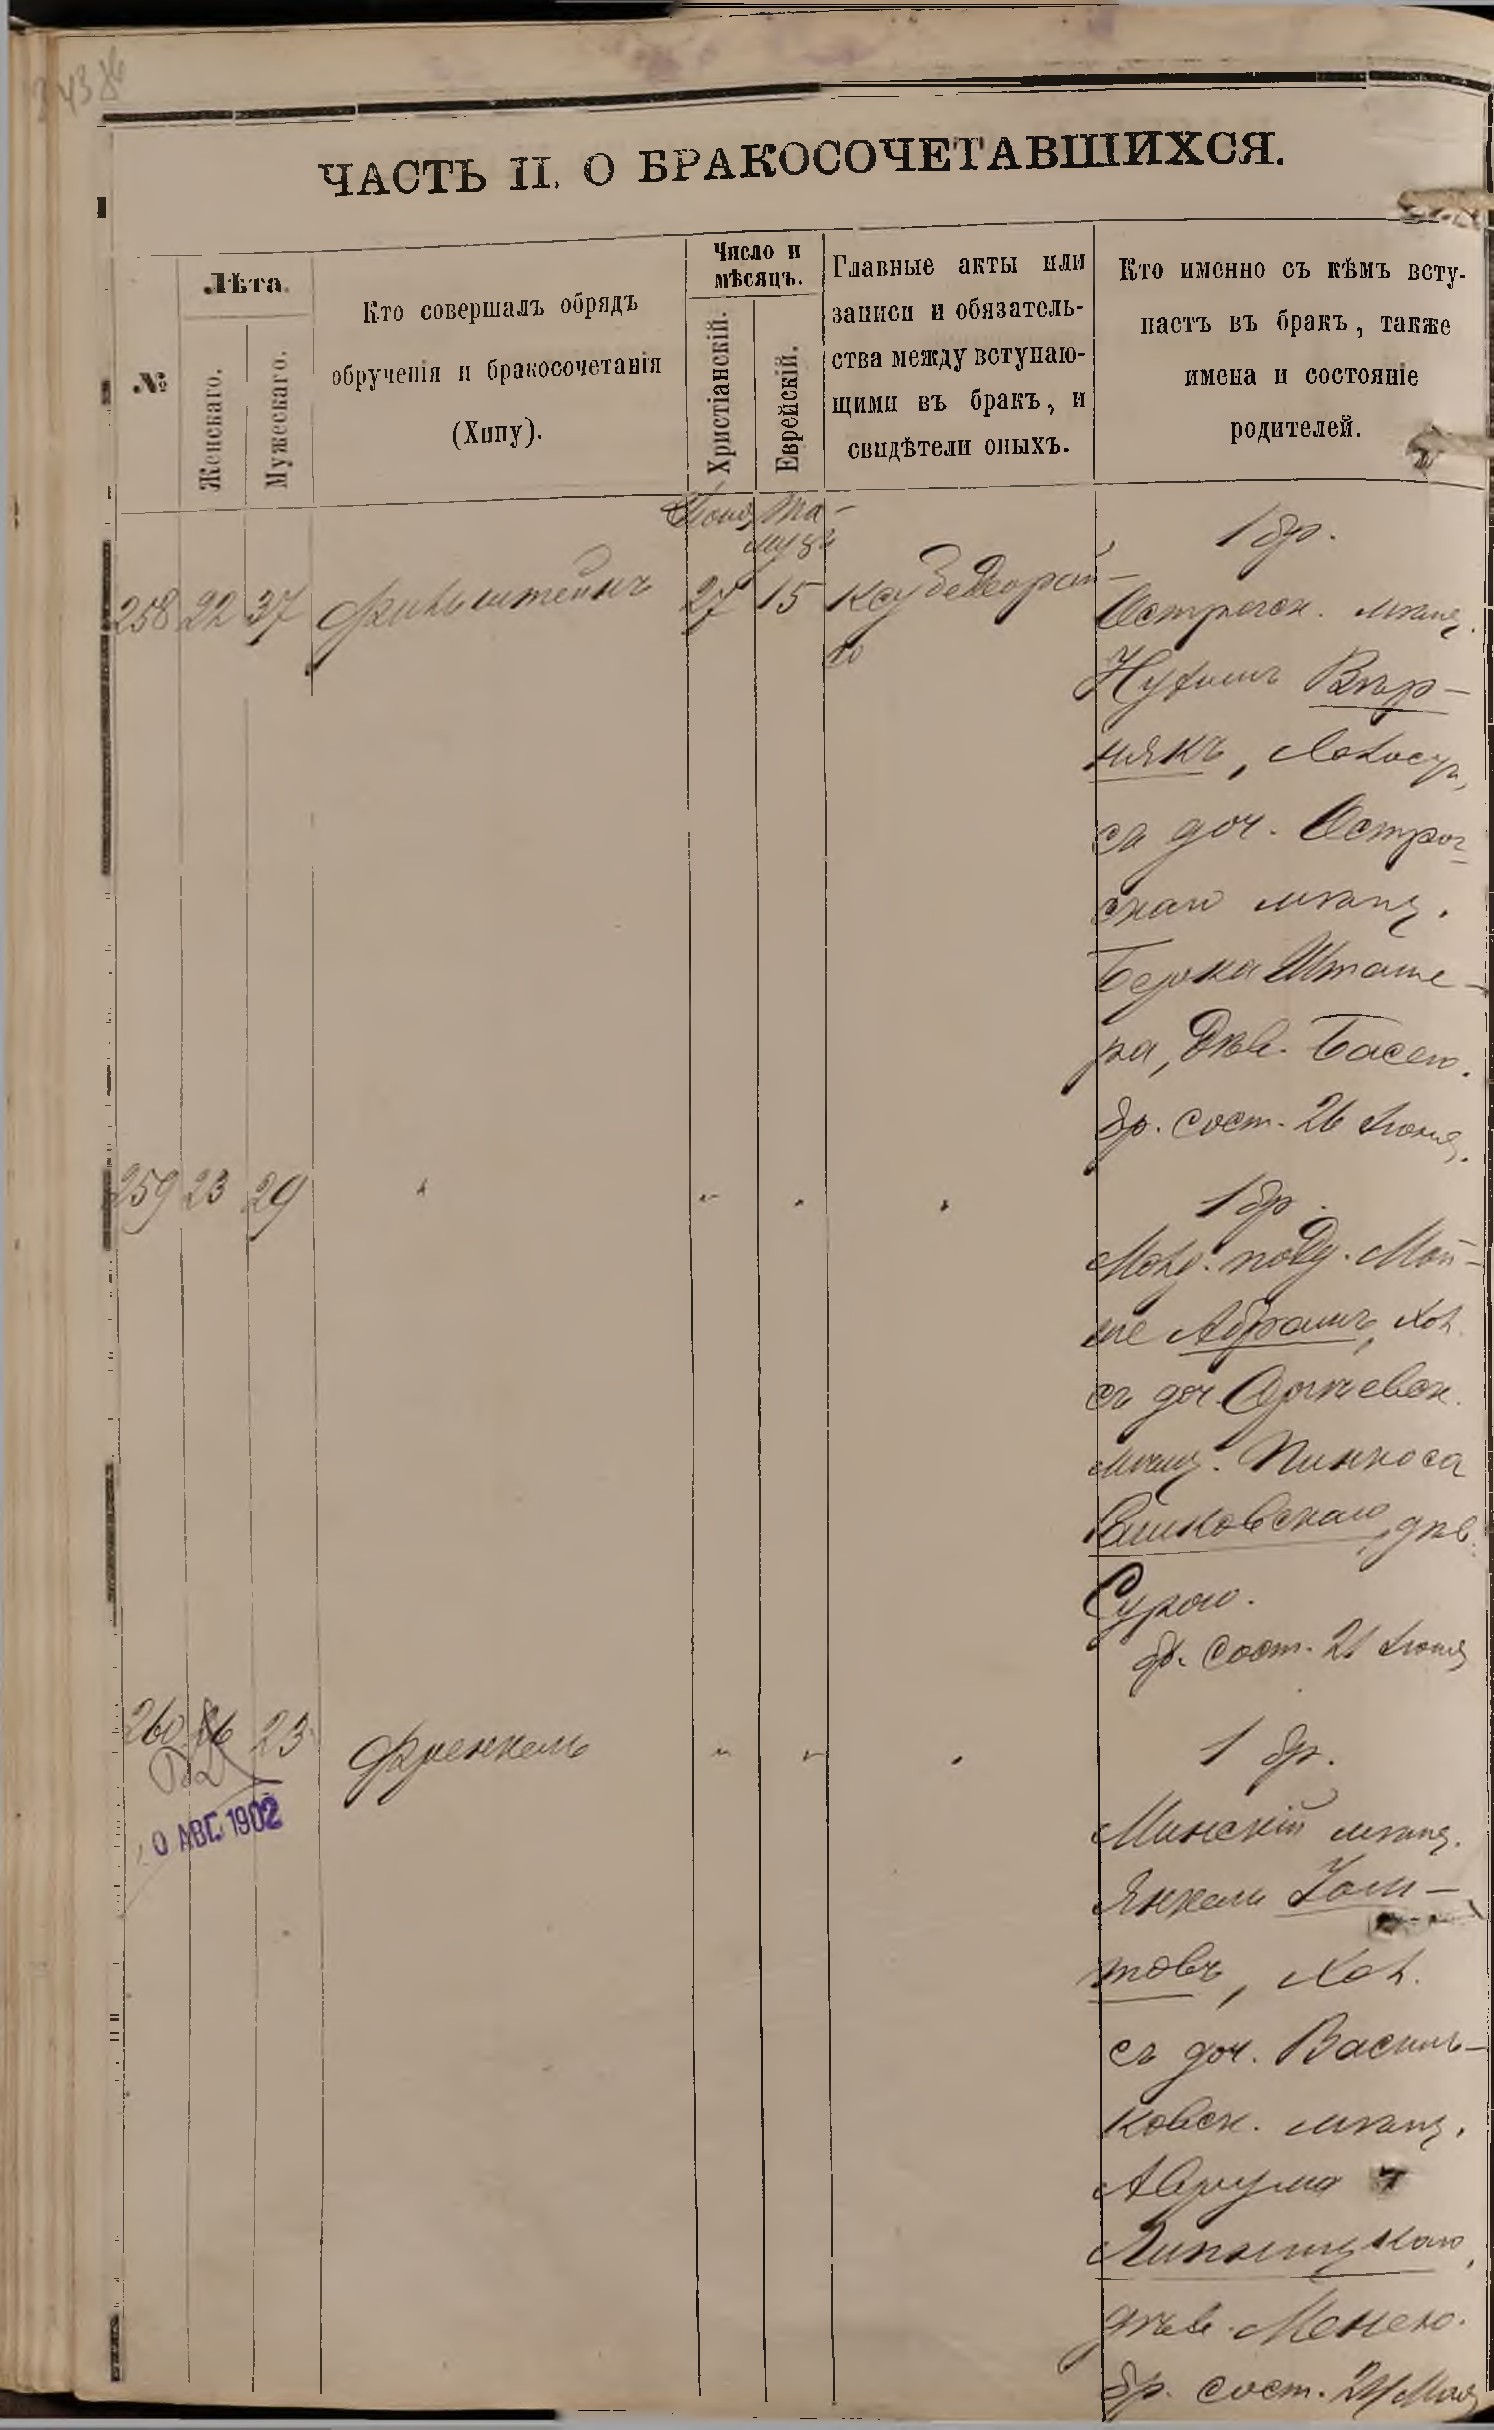 ЧАСТЬ II. О БРАКОСОЧЕТАВШИХСЯ.
№
Лѣта.
Женскаго.
Мужескаго.
Кто совершалъ обрядъ
обрученія и бракосочетанія
(Хипу).
Число и
мѣсяцъ.
Христіанскій.
Еврейскій.
Главные акты или
записи и обязатель-
ства между вступаю-
щими въ бракъ, и
свидѣтели оныхъ.
Кто именно съ кѣмъ всту-
паетъ въ бракъ, также
имена и состояніе
родителей.
Іюнь Та-
музъ
258 22 37 Финкильштейнъ 27 15
1 бр.
Острогск. мѣщ.
Нухимъ Вѣр-
някъ, Холост,
съ доч. Острог-
скаго мѣщ.
Берка Штаме-
ра, Дѣв. Басею.
бр. сост. 26 Іюня.
259 23 29 " " " "
1 бр.
Молд. подд. Мой-
ше Абрамъ, Хол.
съ доч. Ржищевск.
мѣщ. Пинкоса
дѣв.
Сурою.
бр. сост. 21 Іюня
260 23 Френкель " " "
0 АВГ. 1902
1 бр.
Минскій мѣщ.
Янкель Хаи-
товъ, Хол.
съ доч. Василь-
ковск. мѣщ.
Аврума
Липницкаго,
дѣв. Менею.
бр. сост. 21 Мая